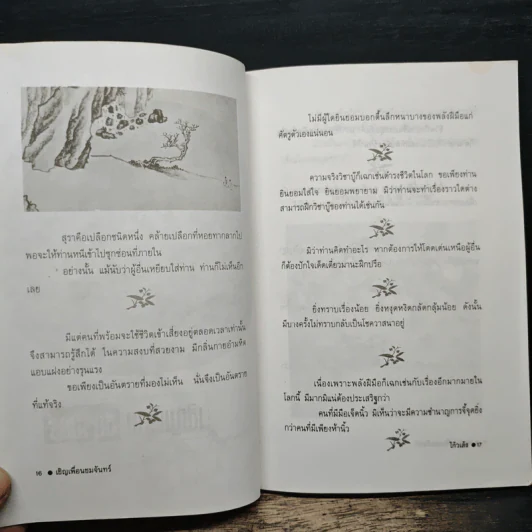 สุราคือเปลือกชนิดหนึ่ง คล้ายเปลือกที่หอยทากลากไป
พอจะให้ท่านหนีเข้าไปซุกซ่อนที่ภายใน
อย่างนั้น แม้นับว่าผู้อื่นเหยียบใส่ท่าน ท่านก็ไม่เห็นอีก
เลย
มีแต่คนที่พร้อมจะใช้ชีวิตเข้าเสี่ยงอยู่ตลอดเวลาเท่านั้น
จึงสามารถรู้สึกได้ ในความสงบที่สวยงาม มีกลิ่นอายอำมหิต
แอบแฝงอย่างรุนแรง
ขอเพียงเป็นอันตรายที่มองไม่เห็น นั่นจึงเป็นอันตราย
ที่แท้จริง
16 ● เชิญเพื่อนชมจันทร์
ไม่มีผู้ใดยินยอมบอกตื้นลึกหนาบางของพลังฝีมือแก่
ศัตรูตัวเองแน่นอน
ความจริงวิชาบู๊ก็เฉกเช่นดำรงชีวิตในโลก ขอเพียงท่าน
ยินยอมใส่ใจ ยินยอมพยายาม มีว่าท่านจะทำเรื่องราวใดต่าง
สามารถฝึกวิชาบู๊ของท่านได้เช่นกัน
มิว่าท่านคิดทำอะไร หากต้องการให้โดดเด่นเหนือผู้อื่น
ก็ต้องปักใจเด็ดเดี่ยวมานะฝึกปรือ
ยิ่งทราบเรื่องน้อย ยิ่งหงุดหงิดกลัดกลุ้มน้อย ดังนั้น
มีบางครั้งไม่ทราบกลับเป็นโชควาสนาอยู่
เนื่องเพราะพลังฝีมือก็เฉกเช่นกับเรื่องอีกมากมายใน
โลกนี้ มีมากมิแน่ต้องประเสริฐกว่า
คนที่มีมือเจ็ดนิ้ว มิเห็นว่าจะมีความชำนาญการจี้จุดยิ่ง
กว่าคนที่มีเพียงห้านิ้ว
โก้วเล้ง ● 17